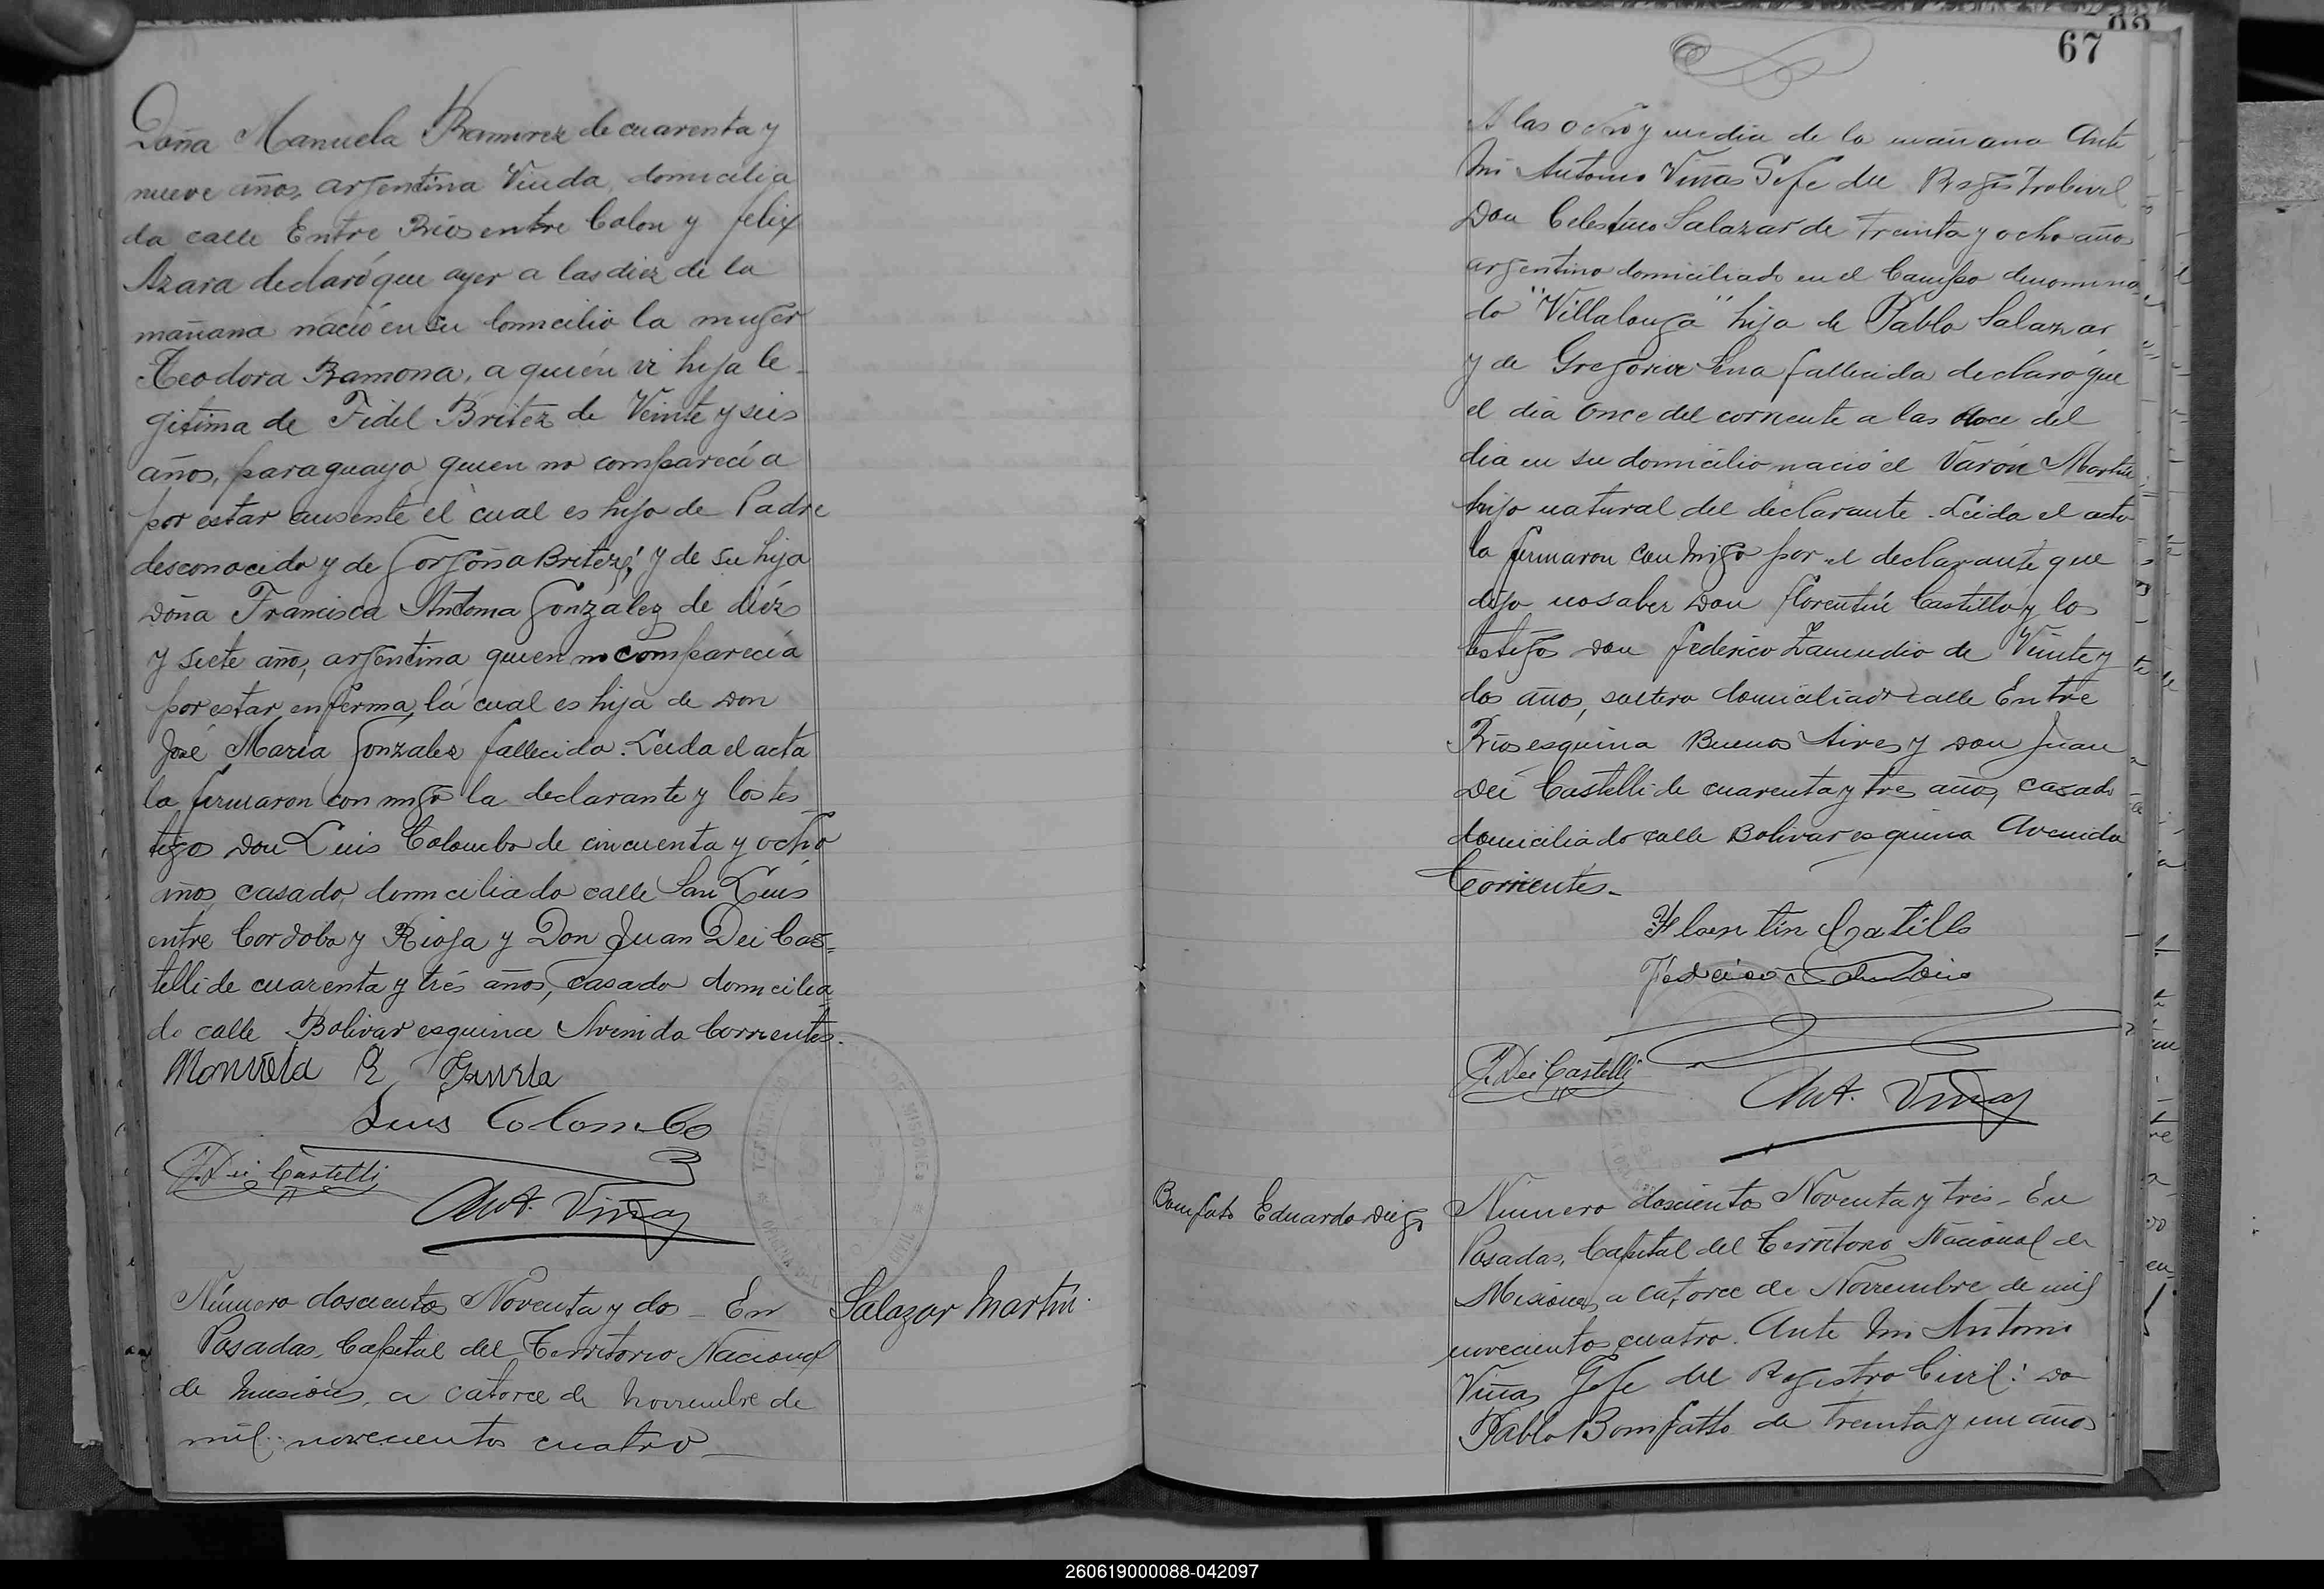 Doña Manuela Ramirez de cuarenta y
nueve años, argentina Viuda, domicilia
da calle Entre Rios entre Colon y felix
Azara declaró que ayer a las diez de la
mañana nació en su domicilio la muger
Teodora Ramona, a quién vi hija le-
gitima de Fidel Britez de Veinte y seis
años, paraguayo quien no comparecia
por estar ausente el cual es hijo de Padre
desconocido y de Gorgoña Britez; y de su hija
Doña Francisca Antonia González de diéz
y siete años, argentina quien no comparecia
por estar enferma, la cual es hija de Don
José Maria Gonzales fallecido. Leida el acta
la firmaron con migo la declarante y los tes
tigos Don Luis Colombo de cincuenta y ocho
años, casado, domiciliado calle San Luis
entre Cordoba y Rioja y Don Juan Dei Cas=
telli de cuarenta y trés años, casado domicilia
do calle Bolivar esquina Avenida Corrientes.
Manuela R
Luis Colombo
J. Dei Castelli
Ant. Viñas
Número doscientos Noventa y dos - En
Posadas, Capital del Territorio Nacional
de Misiones, a catorce de Noviembre de
mil novecientos cuatro
Salazar Martin.
67
A las ocho y media de la mañana Ante
Mi Antonio Viñas Gefe del Registro Civil
Don Celestino Salazar de treinta y ocho años
argentino domiciliado en el Campo denomina
do "Villalonga" hijo de Pablo Salazar
y de Gregoria fallecida declaró que
el dia Once del corriente a las doce del
dia en su domicilio nació el Varón Martin
hijo natural del declarante. Leida el acta
la firmaron con migo por el declarante que
dijo no saber Don florentin Castillo y los
testigos Don federico Zamudio de Veinte y
dos años, soltero domiciliado calle Entre
Rios esquina Buenos Aires y Don Juan
Dei Castelli de cuarenta y tres años, casado
domiciliado calle Bolivar esquina Avenida
Corrientes.
Florentin Catillo
Federico Zamudio
J. Dei Castelli
Ant. Viñas
Bomfato Eduardo Diego
Número doscientos Noventa y tres - En
Posadas, Capital del Territorio Nacional de
Misiones, a catorce de Noviembre de mil
novecientos cuatro. Ante Mi Antonio
Viñas Gefe del Registro Civil: Do
Pablo Bomfatto de treinta y un años
260619000088-042097